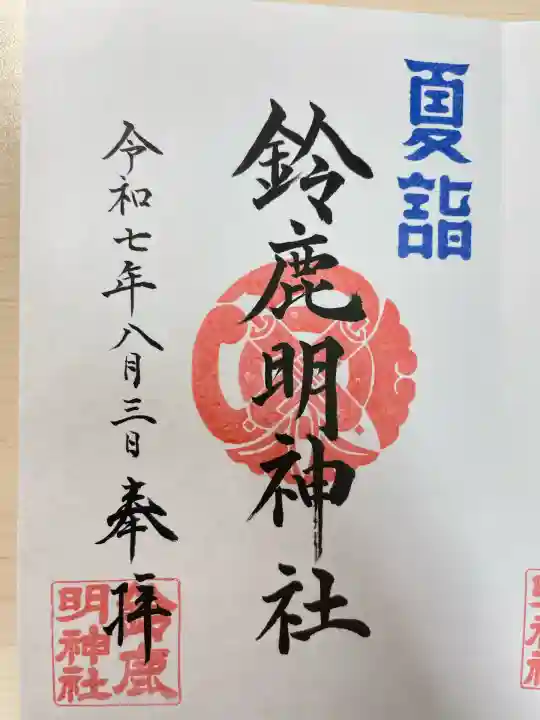 夏詣
鈴鹿明神社
令和七年八月三日 奉拝
鈴鹿
明神社